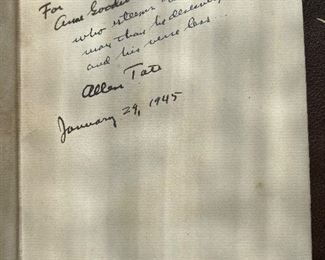 For
Anne Goodwin
who esteems
more than he deserves
and his verse less...
Allen Tate
January 29, 1945